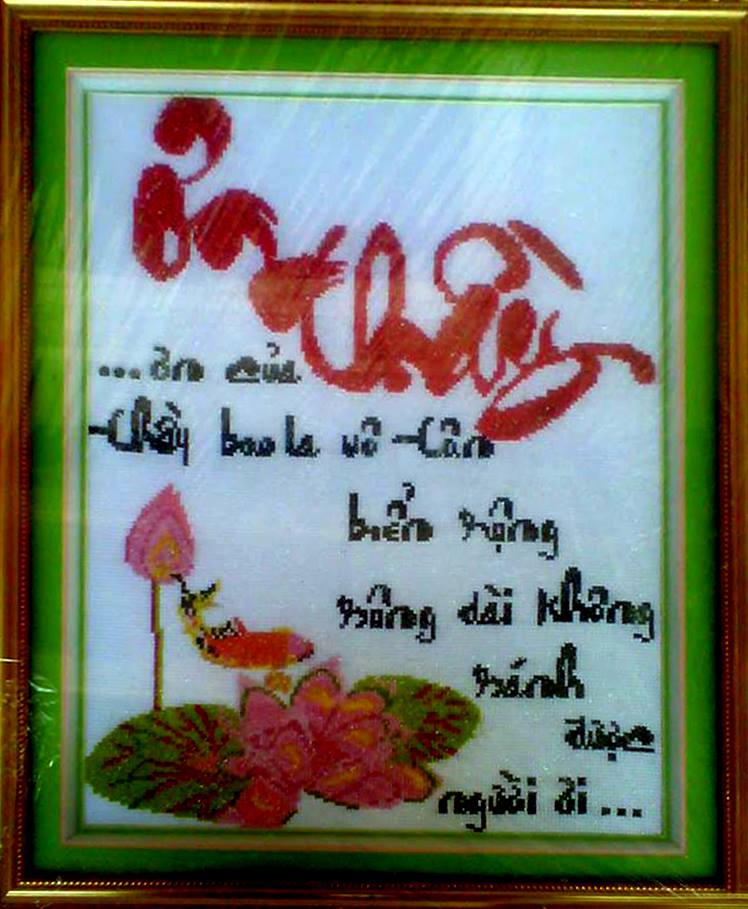 Ơn thầy
...ơn của
Thầy bao la vô Tận
biển rộng
sông dài không
sánh
được
người ơi...